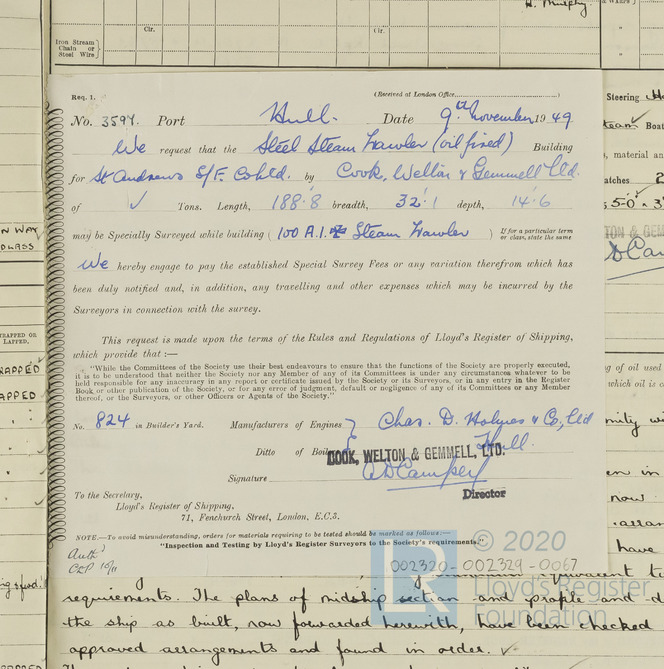 H. Murphy
Cir. Cir.
Iron Stream
Chain or
Steel Wire
Req. 1. (Received at London Office
No. 3597. Port Hull. Date 9th November 1949
We request that the Steel Steam Trawler (oil fired) Building
for St Andrews S/F. Co Ltd. by Cook, Welton & Gemmell Ltd.
of ✓ Tons. Length, 188'·8 breadth, 32'·1 depth, 14'·6
may be Specially Surveyed while building ( 100 A.1. Steam Trawler ) If for a particular term
or class, state the same
We hereby engage to pay the established Special Survey Fees or any variation therefrom which has
been duly notified and, in addition, any travelling and other expenses which may be incurred by the
Surveyors in connection with the survey.
This request is made upon the terms of the Rules and Regulations of Lloyd's Register of Shipping,
which provide that :—
"While the Committees of the Society use their best endeavours to ensure that the functions of the Society are properly executed,
it is to be understood that neither the Society nor any Member of any of its Committees is under any circumstances whatever to be
held responsible for any inaccuracy in any report or certificate issued by the Society or its Surveyors, or in any entry in the Register
Book or other publication of the Society, or for any error of judgment, default or negligence of any of its Committees or any Member
thereof, or the Surveyors, or other Officers or Agents of the Society."
No. 824 in Builder's Yard. Manufacturers of Engines Chas. D. Holmes & Co, Ltd
Ditto of Boilers Hull.
COOK, WELTON & GEMMELL, LTD.
Signature
Director
To the Secretary,
Lloyd's Register of Shipping,
71, Fenchurch Street, London, E.C.3.
NOTE.—To avoid misunderstanding, orders for materials requiring to be tested should be marked as follows:—
"Inspection and Testing by Lloyd's Register Surveyors to the Society's requirements."
LR © 2020
002320-002329-0067
Lloyd's Register
Foundation
requirements. The plans of midship section and profile and
the ship as built, now forwarded herewith, have been checked
approved arrangements and found in order. ✓
N WAY
DGLASS
TRAPPED OR
LAPPED.
RAPPED
APPED
Steering
team Boat
material an
atches
50
of oil used
which oil is
now
have